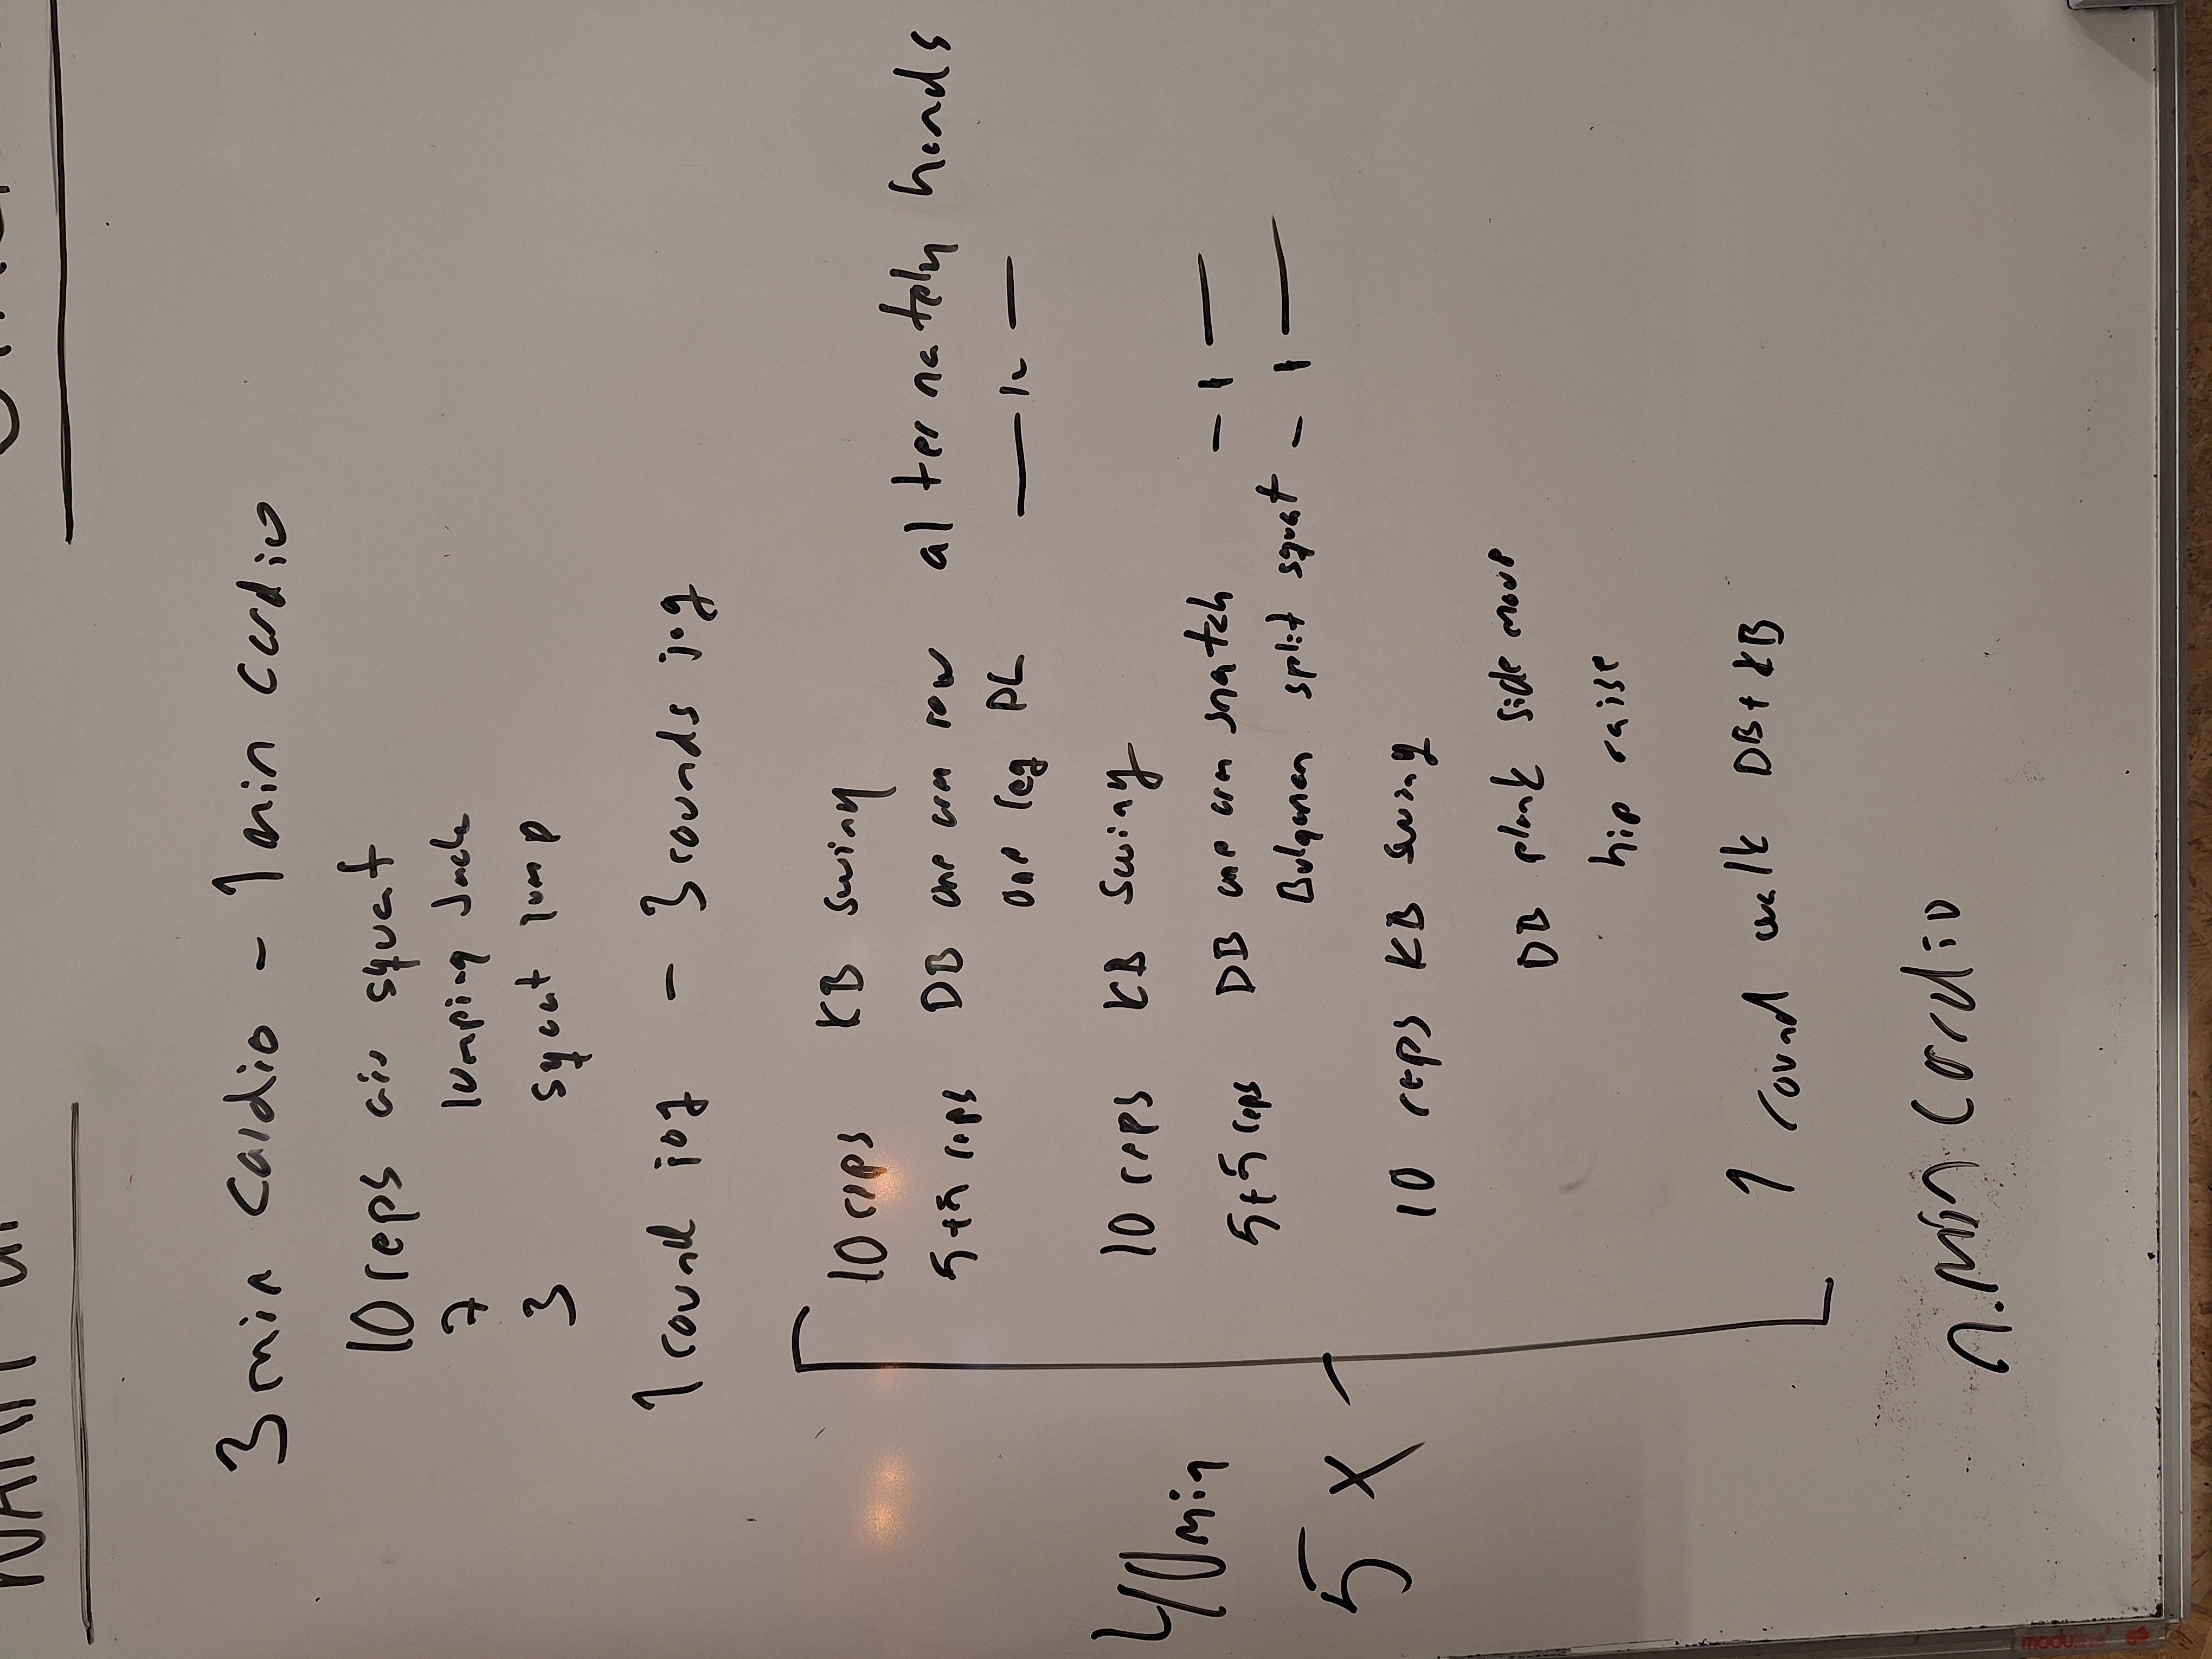 WARM UP
3 min cardio - 1 min cardio
10 reps air squat
7 jumping Jack
3 squat jump
1 round jog - 3 rounds jog
10 reps KB swing
5+5 reps DB one arm row alternately hands
one leg DL — 1 —
10 reps KB Swing
40 min
5+5 reps DB one arm snatch - 1 —
Bulgarian split squat - 1 —
5 x
10 reps KB swing
DB plank side move
hip raise
1 round walk DB+KB
min Cardio